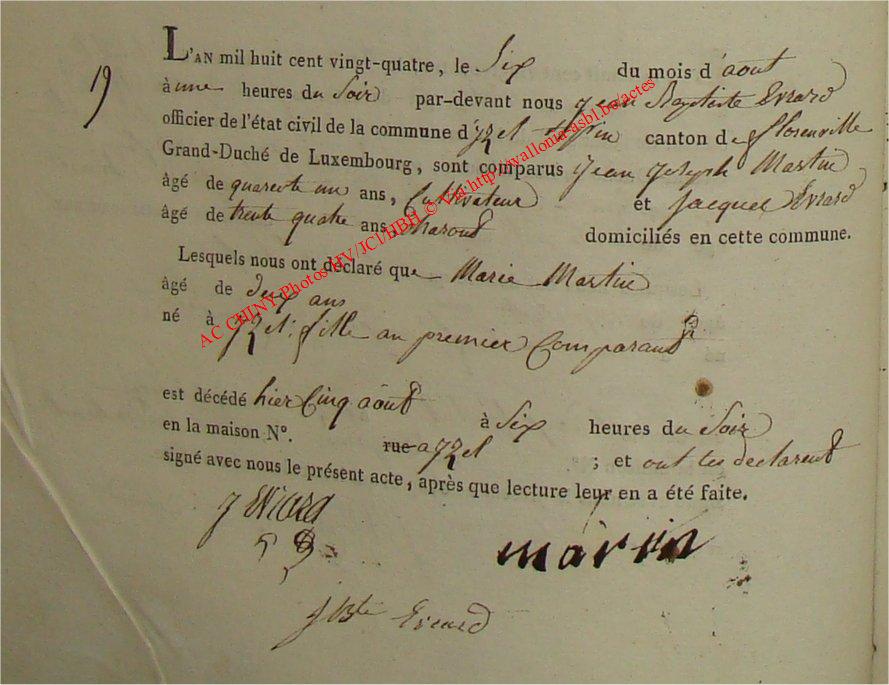 19
L'AN mil huit cent vingt-quatre, le Six du mois d'aout
à une heures du Soir par-devant nous jean Baptiste Evrard
officier de l'état civil de la commune d'yzel canton de florenville
Grand-Duché de Luxembourg, sont comparus jean joseph Martin
âgé de quarente un ans, Cultivateur et jacques Evrard
âgé de trente quatre ans, charon domiciliés en cette commune.
Lesquels nous ont déclaré que Marie Martin
âgé de deux ans
né à yzel: fille au premier Comparant
est décédé hier Cinq aout à Six heures du Soir
en la maison N°. rue a yzel ; et ont les declarent
signé avec nous le présent acte, après que lecture leur en a été faite.
j Evrard
martin
j Bte Evrard
AC CHINY Photos HV/JCl/HBH © via http://wallonia-asbl.be/actes